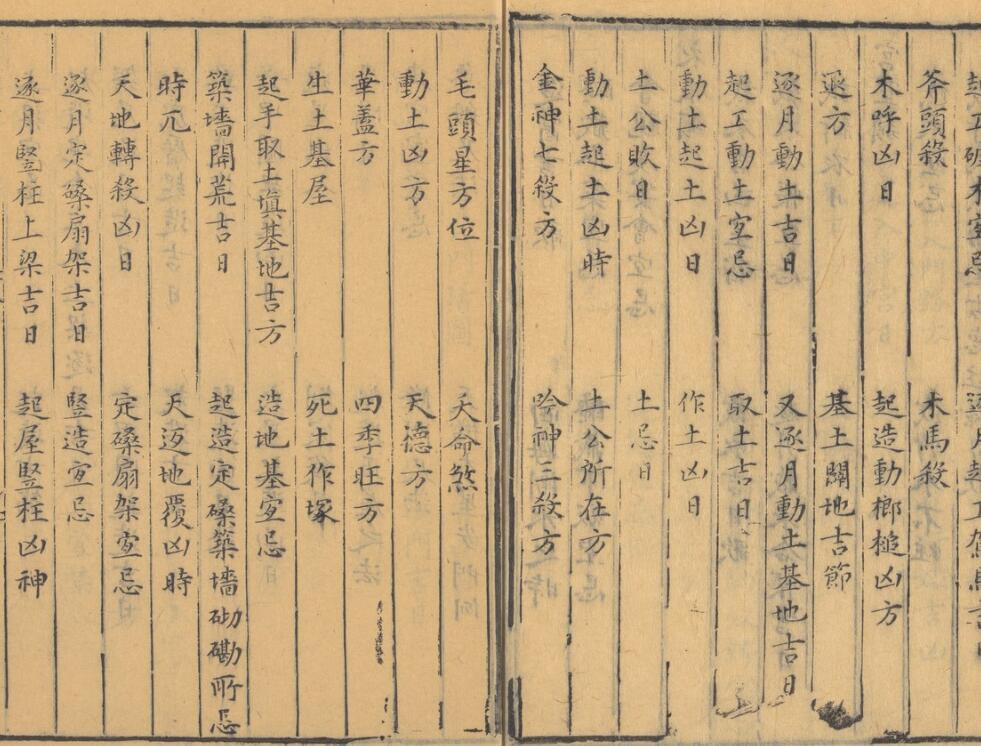 起工破木宜忌 逐月起工駕馬吉日
斧頭殺 木馬殺
木呼凶日 起造動榔槌凶方
退方 基土闢地吉節
逐月動土吉日 又逐月動土基地吉日
起工動土宜忌 取土吉日
動土起土凶日 作土凶日
土公敗日 土忌日
動土起土凶時 土公所在方
金神七殺方 吟神三殺方
毛頭星方位 天命煞
動土凶方 天德方
華蓋方 四季旺方
生土基屋 死土作塚
起手取土填基地吉方 造地基宜忌
築墻開荒吉日 起造定磉築墻砌磡所忌
時兀 天迈地覆凶時
天地轉殺凶日 定磉扇架宜忌
逐月定磉扇架吉日 豎造宜忌
逐月豎柱上梁吉日 起屋豎柱凶神